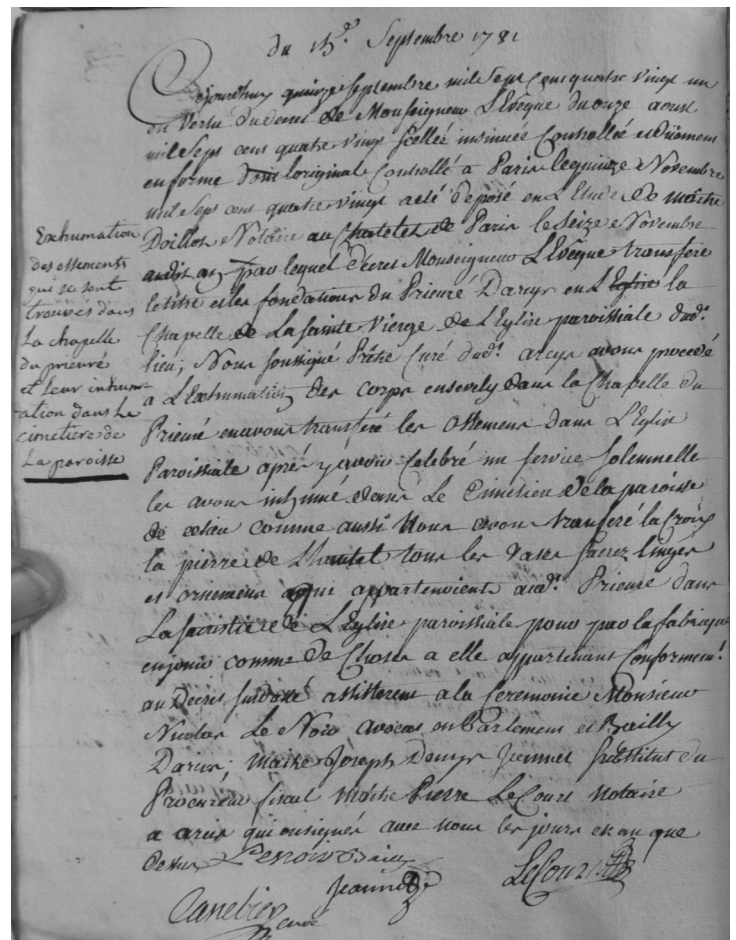 du 15e. Septembre 1781
Cejourdhuy quinze Septembre mil Sept Cens quatre vingt un
en vertu du decret de Monseigneur L'Evêque du onze aoust
mil Sept cens quatre vingt Scellé insinué Controllé et düement
en forme dont loriginal Controllé a Paris le quinze Novembre
mil Sept cens quatre vingt a eté deposé en L'Etude de maitre
Doillot Notaire au Chatelet de Paris le Seize Novembre
audit an par lequel decret Monseigneur L'Evêque transfere
le titre et les fondations du Prieuré Darcys en L'Eglise la
Chapelle de La Sainte Vierge de L'Eglise paroissiale dud.
lieu; Nous soussigné Prêtre Curé dud. arcys avons procedé
a L'Exhumation des corps ensevely dans la Chapelle du
Prieuré en avons transferé les Ossemens dans L'Eglise
Paroissiale aprés y avoir Celebré un Service Solemnelle
les avons inhumé dans Le Cimetiere de la paroisse
de ce lieu comme aussi Nous avons transferé la Croix
la pierre de L'hautel tous les vases Sacrez Linges
et ornemens qui appartenoient aud. Prieuré dans
La Sacristie de L'Eglise paroissiale pour par la fabrique
en jouir comme de Choses a elle appartenant Conformemt.
au Decret Susdatté assisterent a la Ceremonie Monsieur
Nicolas Le Noir avocat en Parlement et Bailly
Darcis; maitre Joseph Denys Jeannet Substitut du
Procureur fiscal maitre Pierre LeCourt Notaire
a arcis qui ont signés avec nous les jours et an que
dessus Lenoir Bailly
Jeannet LeCourt
Canebier
curé
Exhumation
des ossements
qui se sont
trouvés dans
La chapelle
du prieuré
et leur inhum-
ation dans Le
cimetiere de
La paroisse